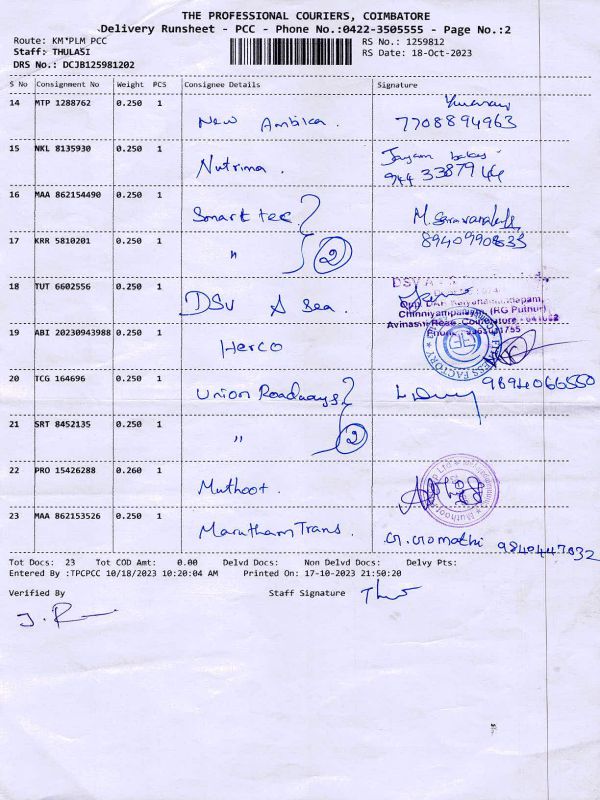 THE PROFESSIONAL COURIERS, COIMBATORE
Delivery Runsheet - PCC - Phone No.:0422-3505555 - Page No.:2
Route: KM*PLM PCC
RS No.: 1259812
Staff: THULASI
RS Date: 18-Oct-2023
DRS No.: DCJB125981202
S No Consignment No Weight PCS Consignee Details Signature
14 MTP 1288762 0.250 1 New Ambika. 7708894963
15 NKL 8135930 0.250 1 Nutrima. Jayam
944 3387944
16 MAA 862154490 0.250 1 Smark tec M. Saravanakumar
17 KRR 5810201 0.250 1 " 2 8940990833
18 TUT 6602556 0.250 1 DSV A Sea. DSV A
Chinniyampalayam, (RG Puthur)
Avinashi Road, Coimbatore - 641062
19 ABI 20230943988 0.250 1 Herco FITNESS FACTORY
20 TCG 164696 0.250 1 Union Roadways 9894066550
21 SRT 8452135 0.250 1 " 2
22 PRO 15426288 0.260 1 Muthoot.
23 MAA 862153526 0.250 1 Marutham Trans. G. Gomathi 9840447032
Tot Docs: 23 Tot COD Amt: 0.00 Delvd Docs: Non Delvd Docs: Delvy Pts:
Entered By :TPCPCC 10/18/2023 10:20:04 AM Printed On: 17-10-2023 21:50:20
Verified By
Staff Signature